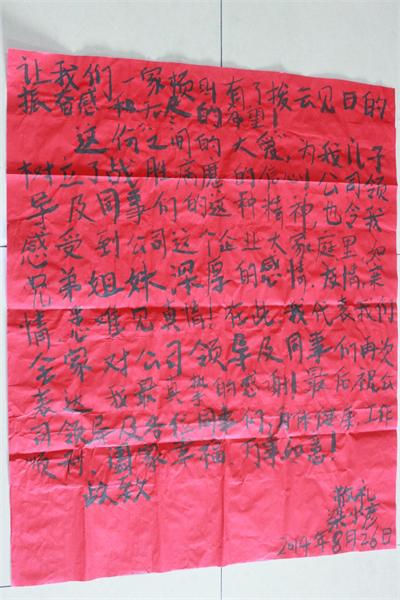 让我们一家顿时有了拨云见日的
振奋感和无尽的希望!
这份之间的大爱,为我儿子
树立了战胜病魔的信心!公司领
导及同事们的这种精神,也令我
感受到公司这个企业大家庭里,如
兄弟姐妹深厚的感情,友情,
情,患难见真情!在此,我代表我们
全家对公司领导及同事们再次
表达我最真挚的感谢!最后祝公
司领导及各位同事们,身体健康,工作
顺利,阖家幸福,万事如意!
此致
敬礼
梁小彦
2014年8月26日